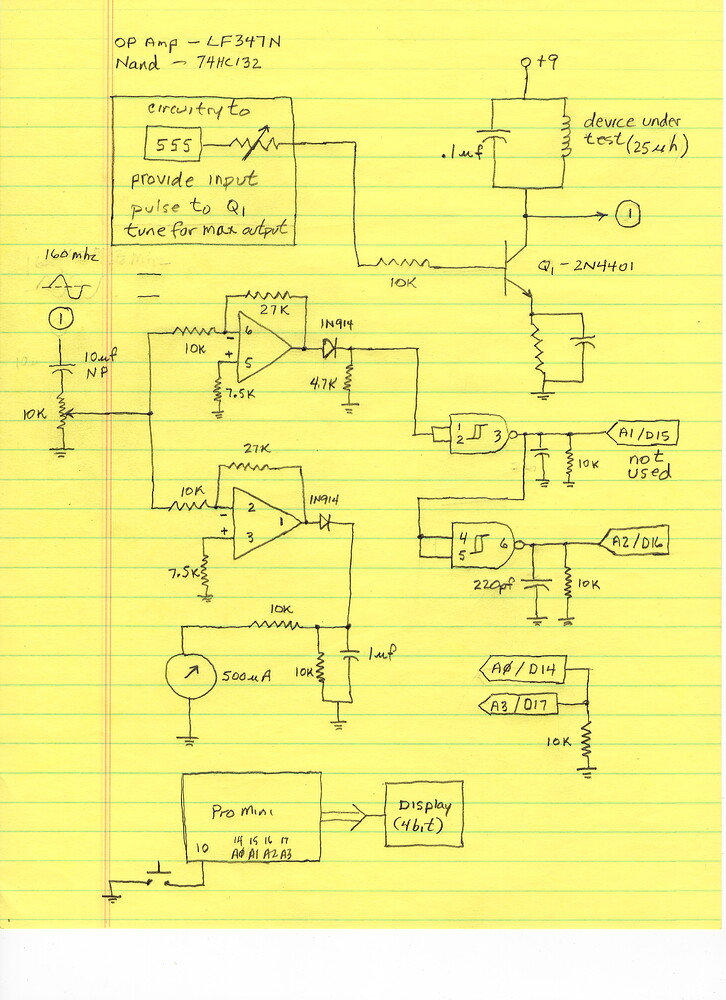 OP Amp – LF347N
Nand – 74HC132
+9
circuitry to
555
provide input
pulse to Q1
tune for max output
.1uf
device under
test (25uh)
1
10K
Q1 - 2N4401
160 mhz
1
10uf
NP
10K
27K
10K
6
5
–
+
7.5K
1N914
4.7K
1
2
3
A1/D15
not
used
10K
27K
10K
2
3
1
–
+
7.5K
1N914
4
5
6
A2/D16
220pf
10K
10K
500uA
10K
1uf
AØ/D14
A3/D17
10K
Pro mini
14 15 16 17
AØ A1 A2 A3
10
Display
(4bit)